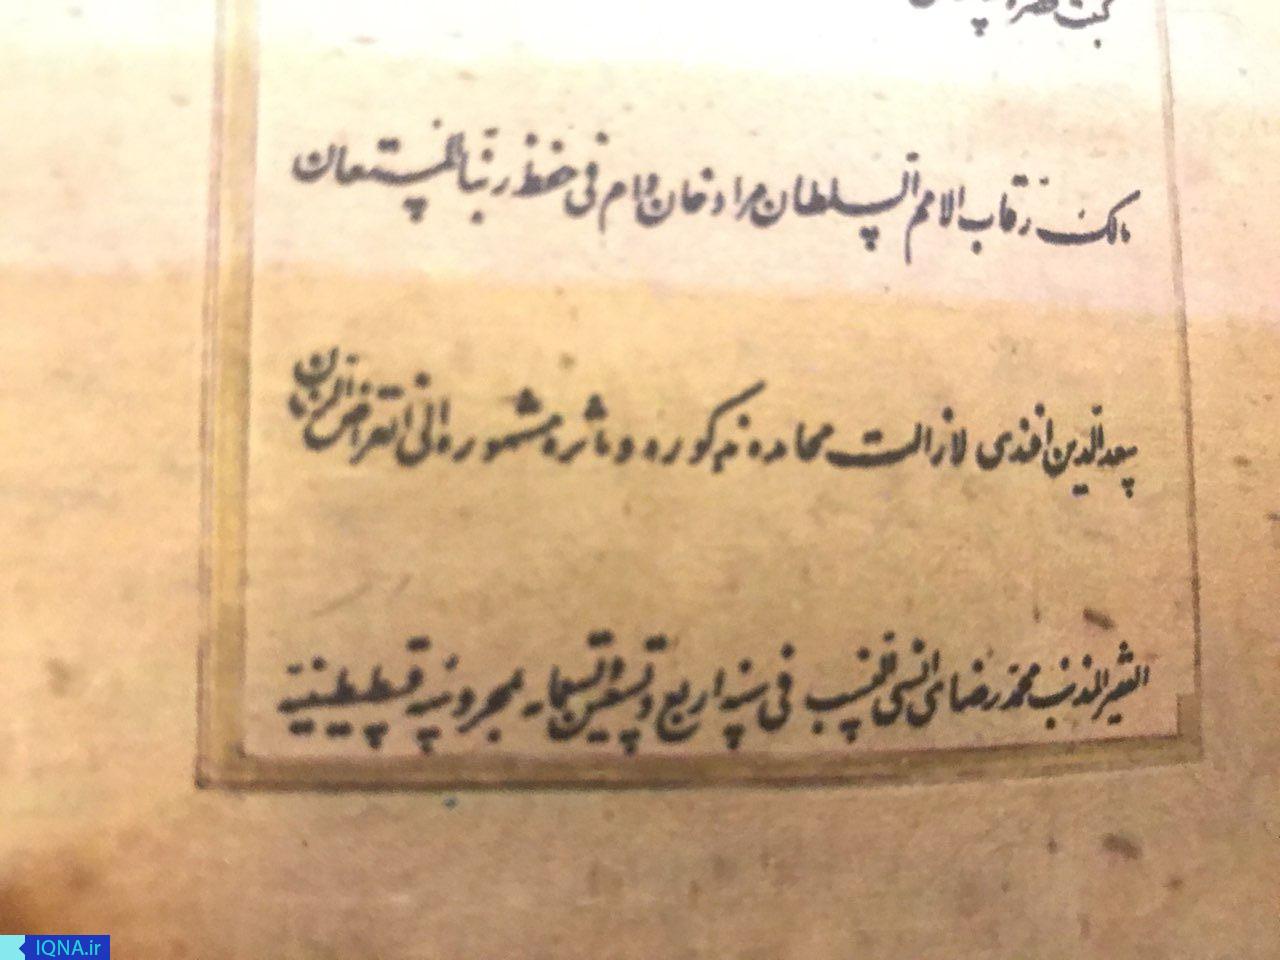 مالک رقاب الامم السلطان مراد خان دام فی حفظ ربنا المستعان
سعد الدین افندی لازالت محامده مذکوره و ماثره مشهوره الی انقراض الزمان
الفقیر المذنب محمد رضای النسب فی سنه اربع و تسعین و تسعمایه بمحروسه قسطنطینیه
IQNA.ir